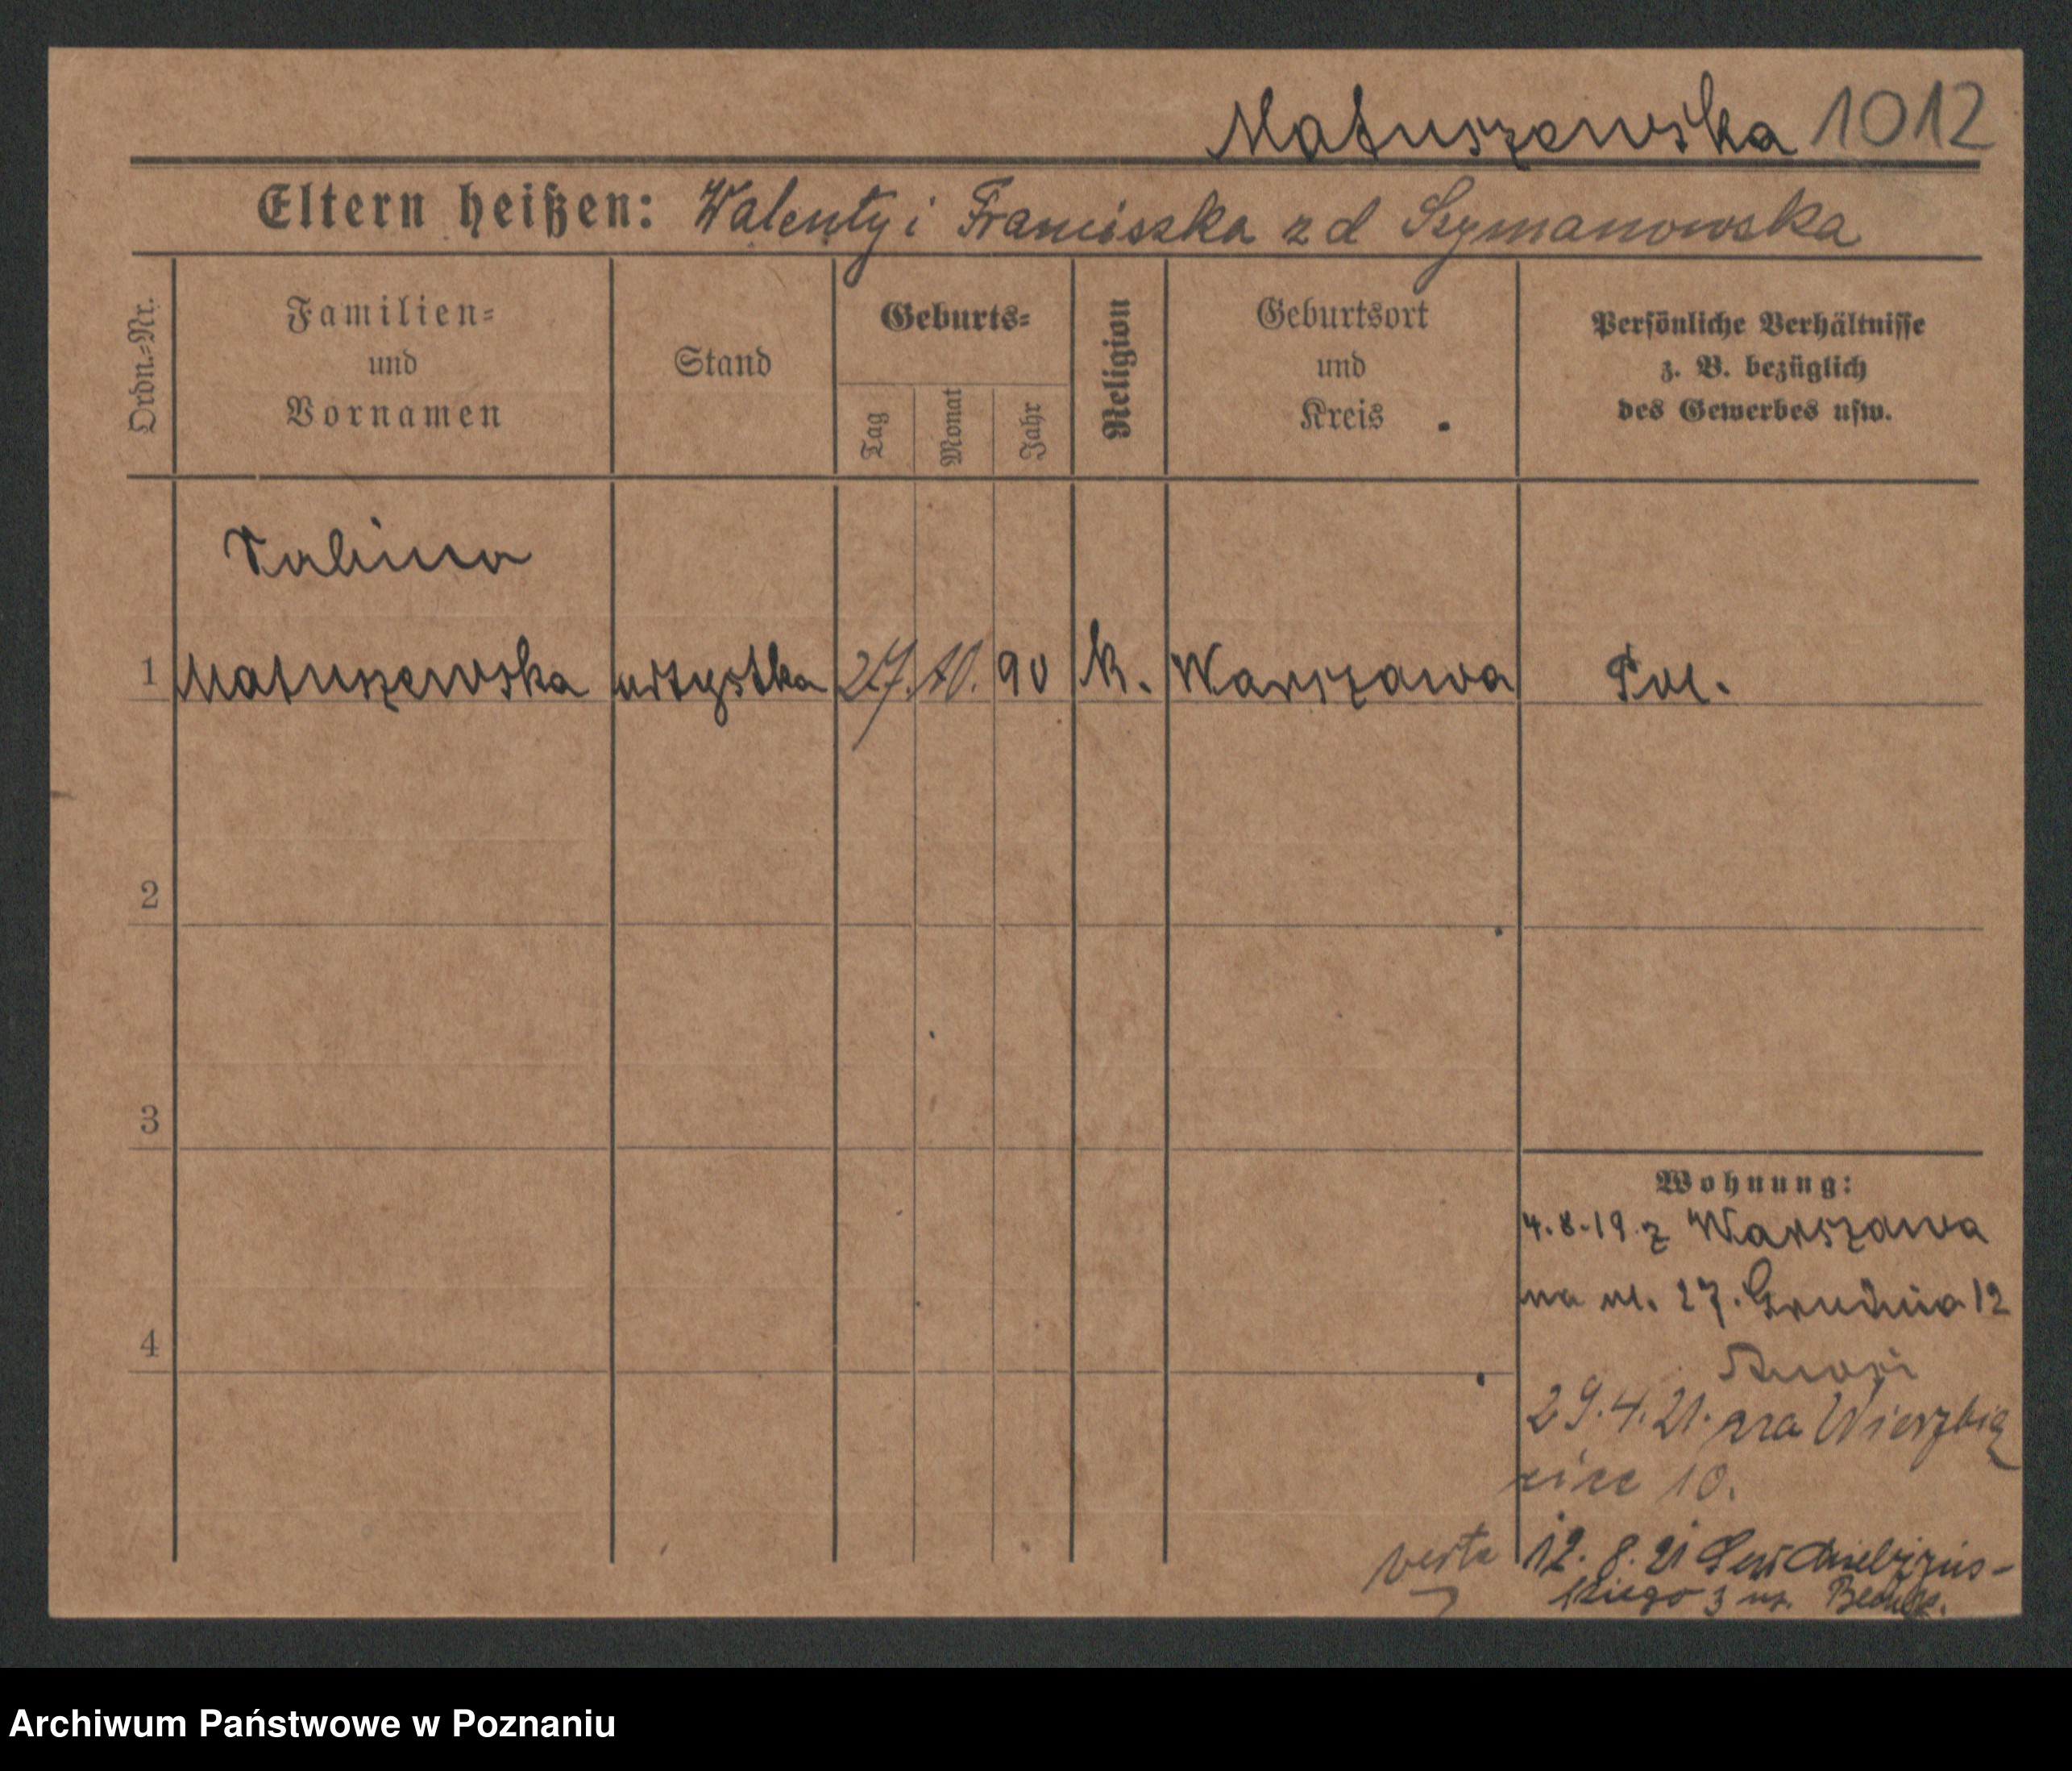 Matuszewska 1012
Eltern heißen: Walenty i Franciszka z d Szymanowska
Ordn.-Nr.
Familien-
und
Vornamen
Stand
Geburts-
Tag
Monat
Jahr
Religion
Geburtsort
und
Kreis
Persönliche Verhältnisse
z. B. bezüglich
des Gewerbes usw.
Sabina
1 Matuszewska artystka 27. 10. 90 k. Warszawa Pol.
2
3
4
Wohnung:
4.8.19 z Warszawa
na ul. 27. Grudnia 12
29.4.21. na Wierzbię
cice 10.
verte 12. 8. 21
skiego 3
Archiwum Państwowe w Poznaniu